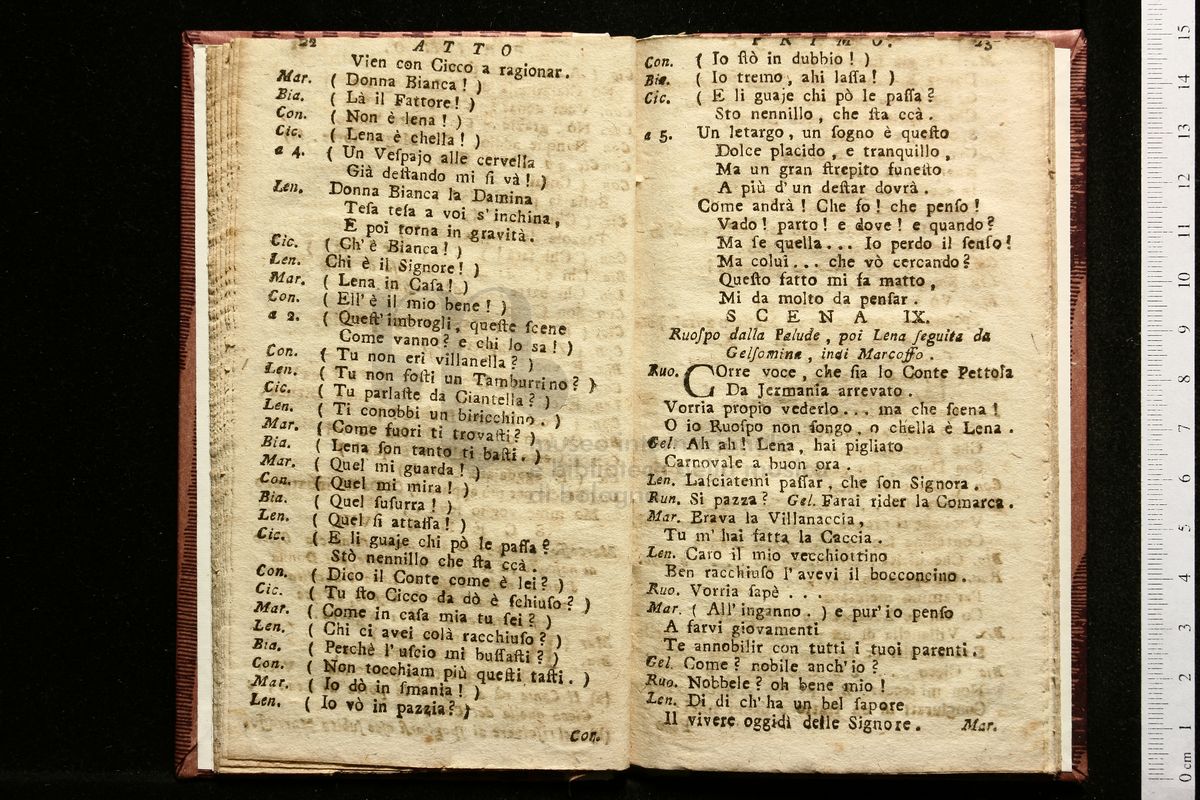 22 ATTO
Vien con Cicco a ragionar.
Mar. ( Donna Bianca! )
Bia. ( Là il Fattore! )
Con. ( Non è lena! )
Cic. ( Lena è chella! )
a 4. ( Un Veſpajo alle cervella
Già deſtando mi ſi và! )
Len. Donna Bianca la Damina
Teſa teſa a voi s'inchina,
E poi torna in gravità.
Cic. ( Ch'è Bianca! )
Len. Chi è il Signore! )
Mar. ( Lena in Caſa! )
Con. ( Ell'è il mio bene! )
a 2. ( Queſt'imbrogli, queſte ſcene
Come vanno? e chi lo sa! )
Con. ( Tu non eri villanella? )
Len. ( Tu non foſti un Tamburrino? )
Cic. ( Tu parlaſte da Ciantella? )
Len. ( Ti conobbi un biricchino. )
Mar. ( Come fuori ti trovaſti? )
Bia. ( Lena ſon tanto ti baſti. )
Mar. ( Quel mi guarda! )
Con. ( Quel mi mira! )
Bia. ( Quel ſuſurra! )
Len. ( Quel ſi attaſſa! )
Cic. ( E li guaje chi pò le paſſa?
Stò nennillo che ſta ccà.
Con. ( Dico il Conte come è lei? )
Cic. ( Tu ſto Cicco da dò è ſchiuſo? )
Mar. ( Come in caſa mia tu ſei? )
Len. ( Chi ci avei colà racchiuſo? )
Bia. ( Perchè l'uſcio mi buſſaſti? )
Con. ( Non tocchiam più queſti taſti. )
Mar. ( Io dò in ſmania! )
Len. ( Io vò in pazzia? )
Con.
PRIMO. 23
Con. ( Io ſtò in dubbio! )
Bia. ( Io tremo, ahi laſſa! )
Cic. ( E li guaje chi pò le paſſa?
Sto nennillo, che ſta ccà.
a 5. Un letargo, un ſogno è queſto
Dolce placido, e tranquillo,
Ma un gran ſtrepito funeſto
A più d'un deſtar dovrà.
Come andrà! Che fo! che penſo!
Vado! parto! e dove! e quando?
Ma ſe quella... Io perdo il ſenſo!
Ma colui... che vò cercando?
Queſto fatto mi fa matto,
Mi da molto da penſar.
SCENA IX.
Ruoſpo dalla Palude, poi Lena ſeguita da
Gelſomina, indi Marcoffo.
Ruo. COrre voce, che ſia lo Conte Pettoſa
Da Jermania arrevato.
Vorria propio vederlo... ma che ſcena!
O io Ruoſpo non ſongo, o chella è Lena.
Gel. Ah ah! Lena, hai pigliato
Carnovale a buon ora.
Len. Laſciatemi paſſar, che ſon Signora.
Run. Si pazza? Gel. Farai rider la Comarca.
Mar. Erava la Villanaccia,
Tu m'hai fatta la Caccia.
Len. Caro il mio vecchiottino
Ben racchiuſo l'avevi il bocconcino.
Ruo. Vorria ſapè...
Mar. ( All'inganno. ) e pur'io penſo
A farvi giovamenti
Te annobilir con tutti i tuoi parenti.
Gel. Come? nobile anch'io?
Ruo. Nobbele? oh bene mio!
Len. Di di ch'ha un bel ſapore
Il vivere oggidì delle Signore. Mar.
0 cm 1 2 3 4 5 6 7 8 9 10 11 12 13 14 15